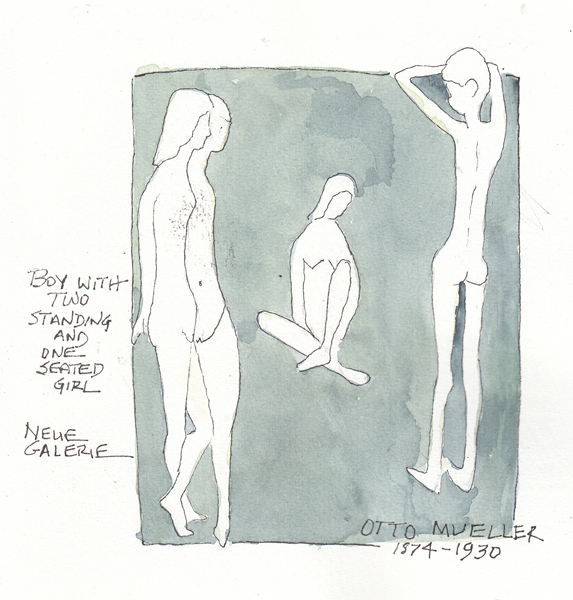 BOY WITH
TWO
STANDING
AND
ONE
SEATED
GIRL
NEUE
GALERIE
OTTO MUELLER
1874-1930